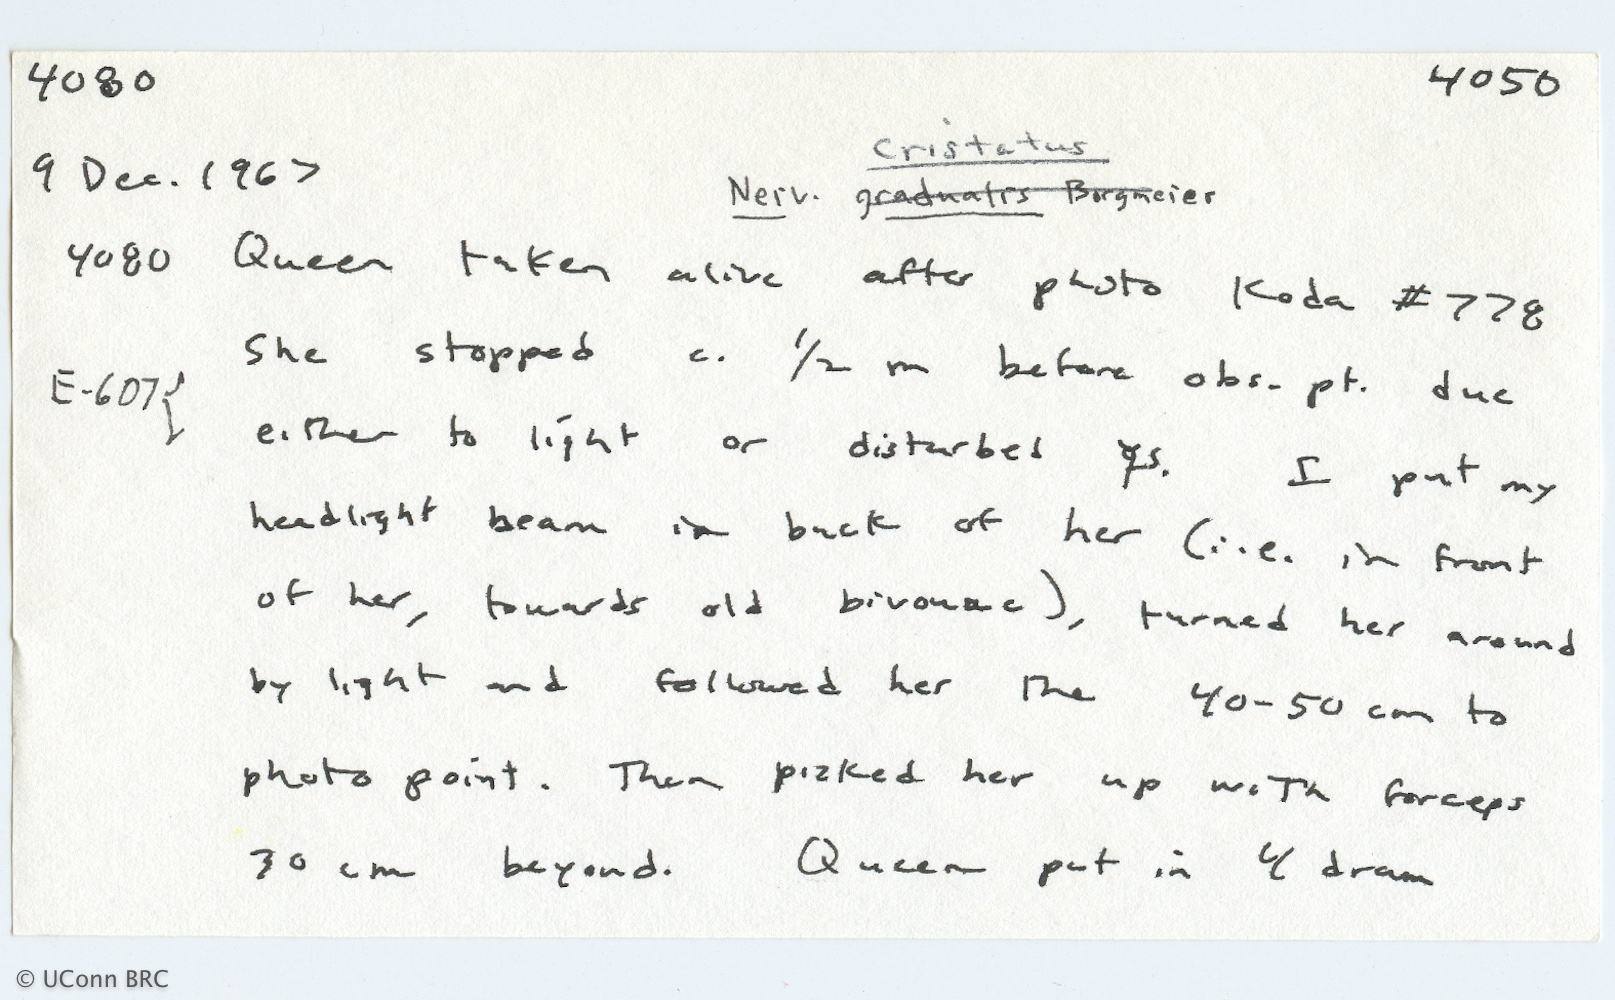 4080 4050
cristatus
9 Dec. 1967
Nerv. graduatis Borgmeier
4080 Queen taken alive after photo Koda #778
She stopped c. 1/2 m before obs. pt. due
E-607{
either to light or disturbed ☿s. I put my
headlight beam in back of her (i.e. in front
of her, towards old bivouac), turned her around
by light and followed her the 40-50 cm to
photo point. Then picked her up with forceps
30 cm beyond. Queen put in 4 dram
© UConn BRC